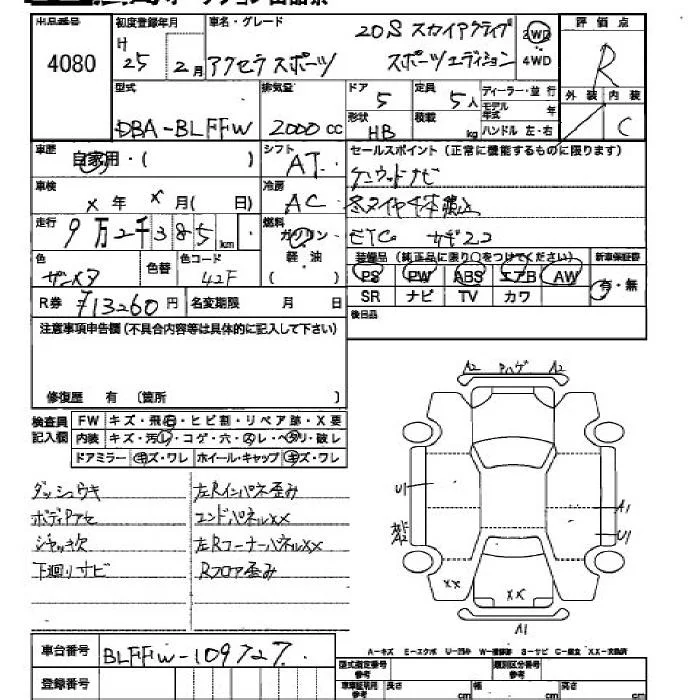 出品番号 初度登録年月 車名・グレード 評価点
4080 H 25 2月 アクセラスポーツ 20S スカイアクティブ スポーツエディション 2WD 4WD R
外装 内装
C
型式 排気量 ドア 定員 ディーラー・並行
DBA-BLFFW 2000cc 5 5人 モデル年式 年
形状 積載
HB kg ハンドル 左・右
車歴 自家用・( ) シフト AT セールスポイント(正常に機能するものに限ります)
ケンウッドナビ
車検 X年 X月( 日) 冷房 AC 冬タイヤ4本積込
走行 9万2千385km 燃料 ガソリン ETC
軽・油
( )
色 色替 色コード 装備品(純正品に限り○をつけてください) 新車保証書
ガンメタ 42F PS PW ABS エアB AW 有・無
SR ナビ TV カワ
R券 ¥13260円 名変期限 月 日 後日品
注意事項申告欄(不具合内容等は具体的に記入して下さい)
修復歴 有 〔箇所 〕
検査員記入欄 FW キズ・飛石・ヒビ割・リペア跡・X要
内装 キズ・汚レ・コゲ・穴・スレ・ヘタリ・破レ
ドアミラー キズ・ワレ ホイール・キャップ キズ・ワレ
ダッシュウキ 左Rインパネ歪み
ボディアセ エンドパネルXX
ジャッキ欠 左RコーナーパネルXX
下廻りサビ Rフロア歪み
A2 ハゲ A2
U1
A1
A2 U1
XX XX
A1
A-キズ E-エクボ U-凹み W-補修跡 S-サビ C-腐食 XX-交換済
車台番号 BLFFW-109727
登録番号
型式指定番号参考 類別区分番号参考
車車証明用参考 長さ cm 幅 cm 高さ cm